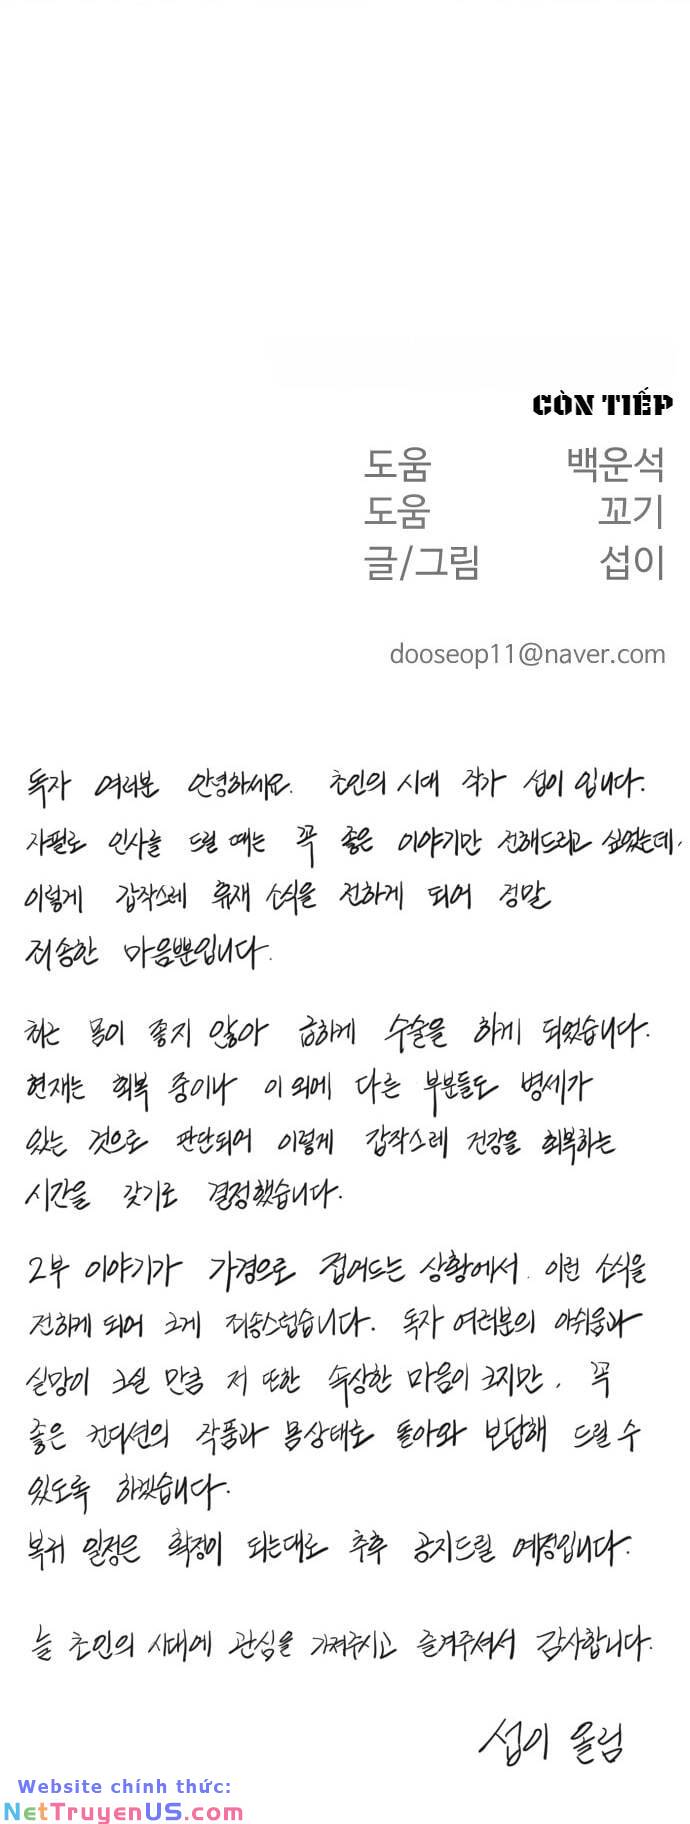 CÒN TIẾP
도움 백운석
도움 꼬기
글/그림 섭이
dooseop11@naver.com
독자 여러분 안녕하세요. 초인의 시대 작가 섭이 입니다.
자필로 인사를 드릴 때는 꼭 좋은 이야기만 전해드리고 싶었는데,
이렇게 갑작스레 휴재 소식을 전하게 되어 정말
죄송한 마음뿐입니다.
최근 몸이 좋지 않아 급하게 수술을 하게 되었습니다.
현재는 회복 중이나 이 외에 다른 부분들도 병세가
있는 것으로 판단되어 이렇게 갑작스레 건강을 회복하는
시간을 갖기로 결정했습니다.
2부 이야기가 가경으로 접어드는 상황에서 이런 소식을
전하게 되어 크게 죄송스럽습니다. 독자 여러분의 아쉬움과
실망이 크실 만큼 저 또한 속상한 마음이 크지만, 꼭
좋은 컨디션의 작품과 몸상태로 돌아와 보답해 드릴 수
있도록 하겠습니다.
복귀 일정은 확정이 되는대로 추후 공지드릴 예정입니다.
늘 초인의 시대에 관심을 가져주시고 즐겨주셔서 감사합니다.
섭이 올림
Website chính thức:
NetTruyenUS.com